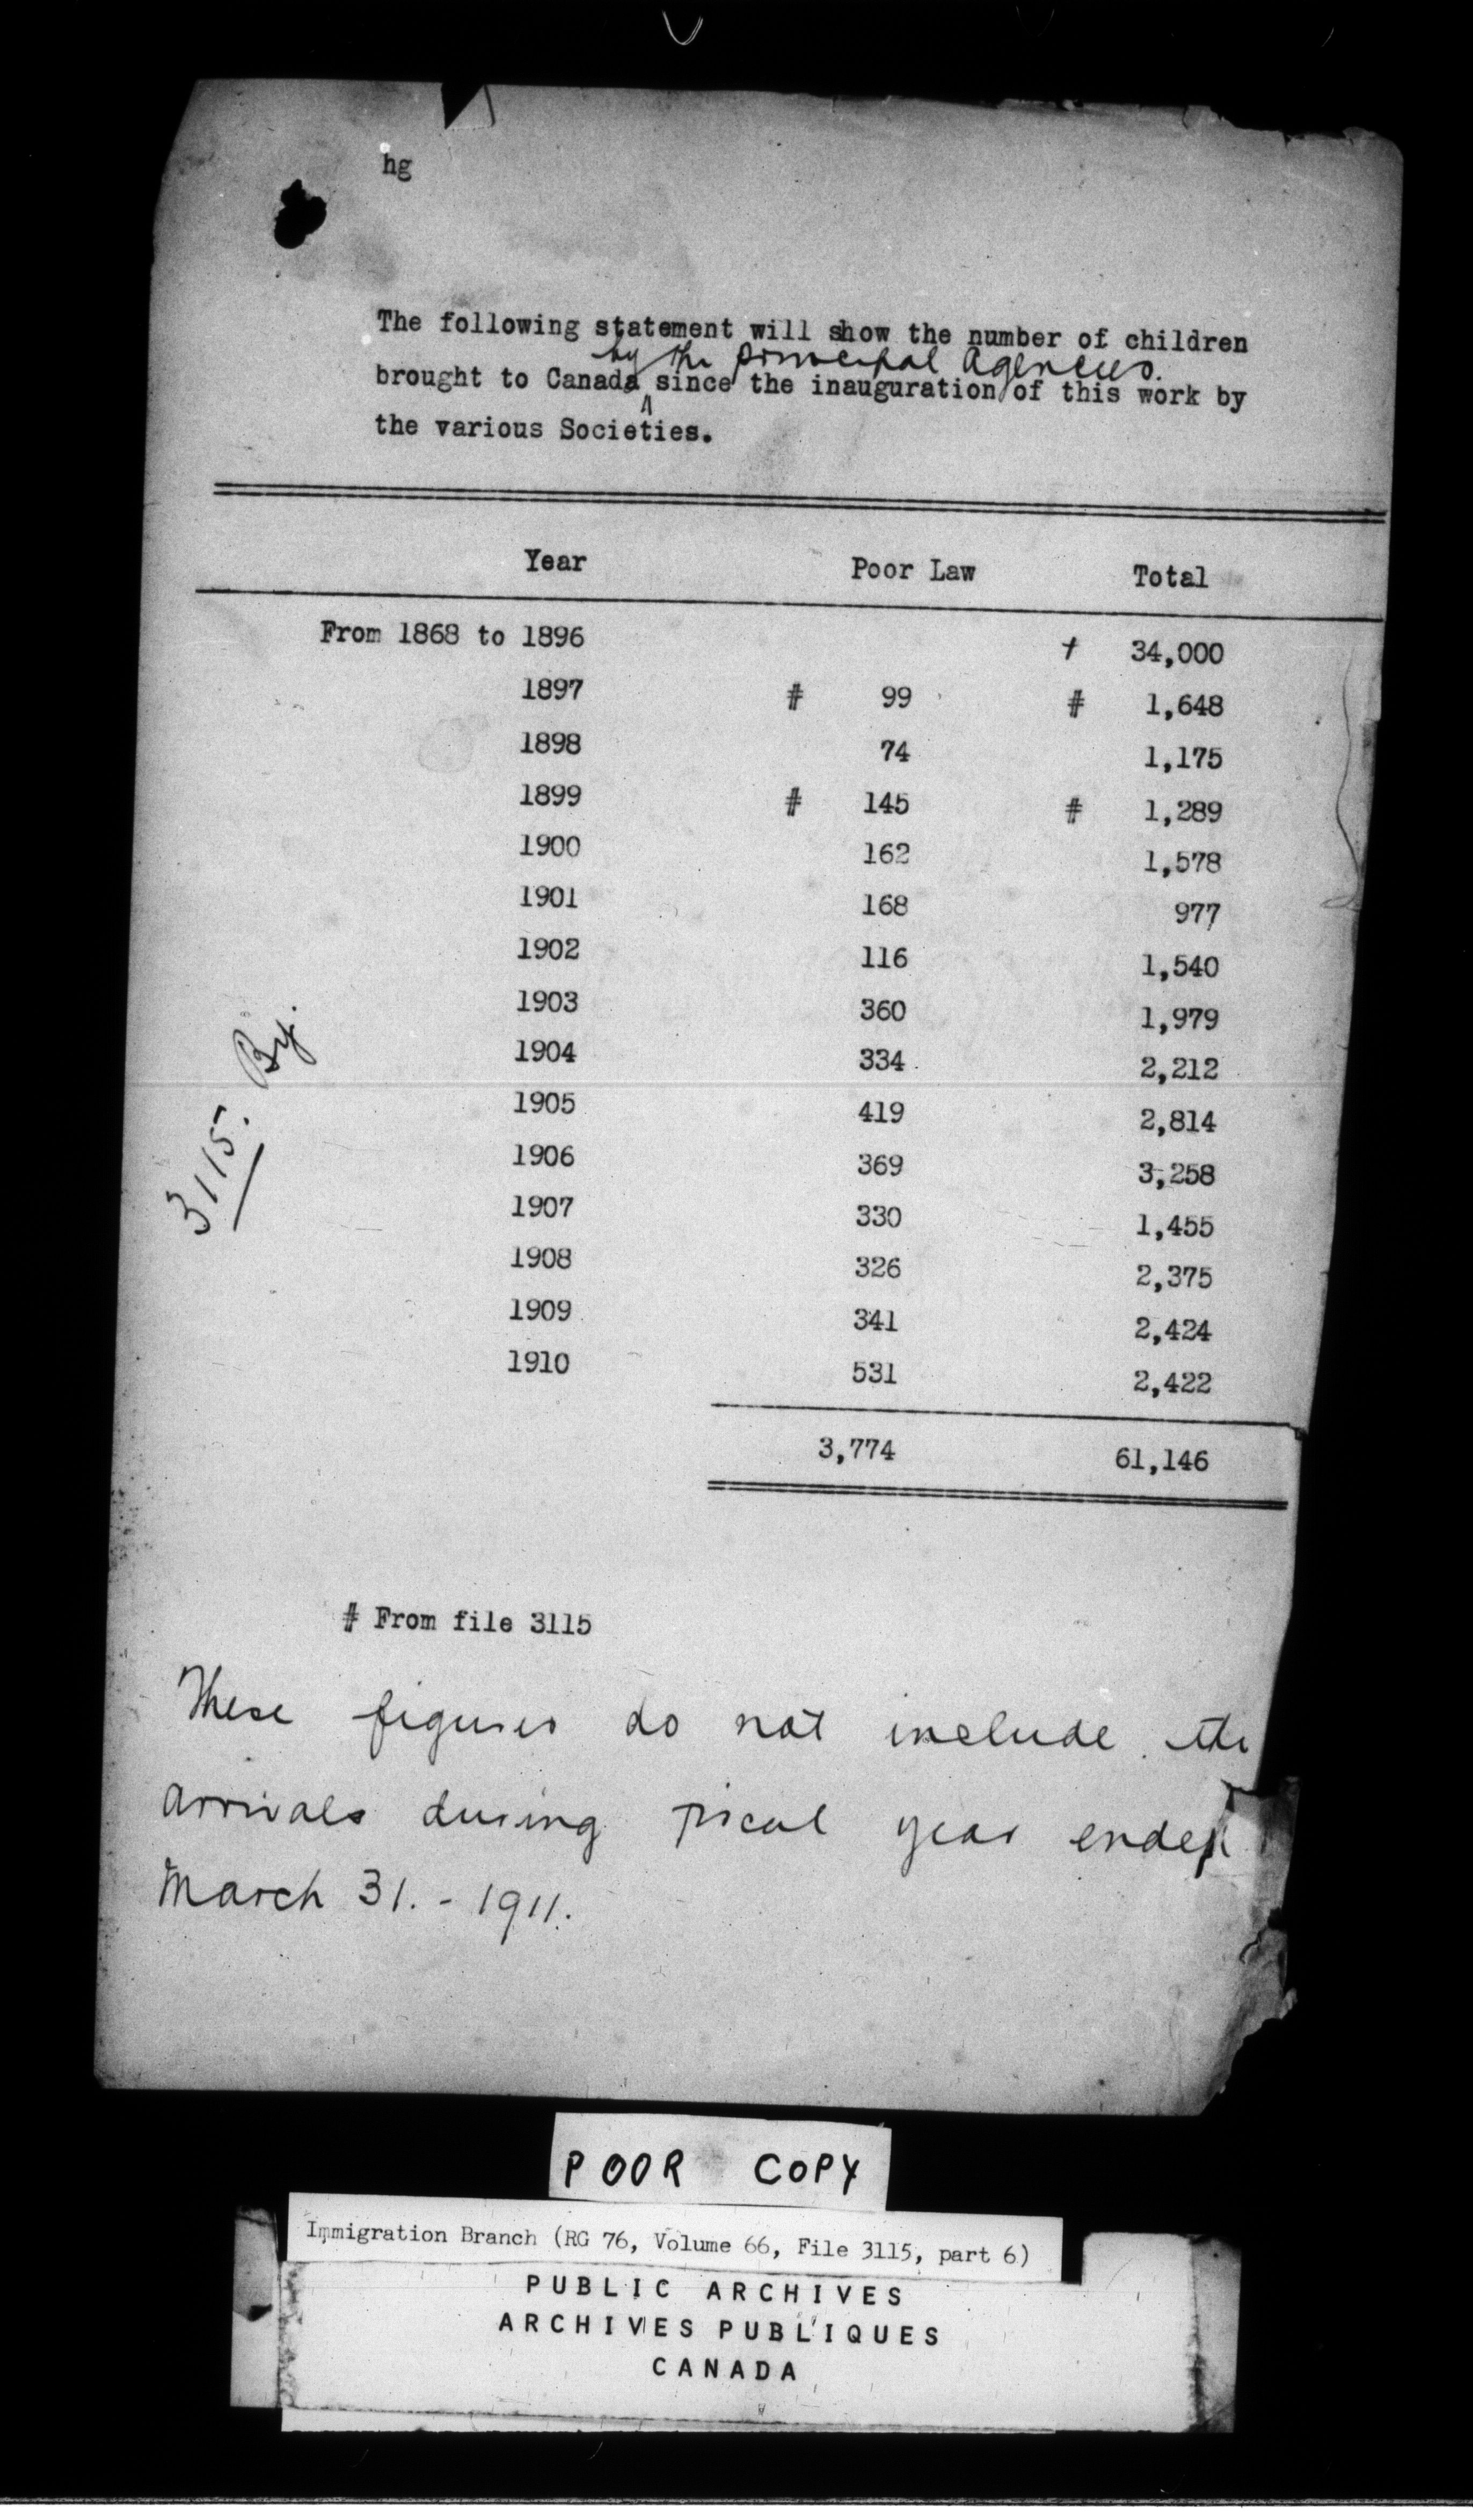 hg
The following statement will show the number of children
by the principal Agencies.
brought to Canada ^ since the inauguration of this work by
the various Societies.
Year Poor Law Total
From 1868 to 1896 † 34,000
1897 # 99 # 1,648
1898 74 1,175
1899 # 145 # 1,289
1900 162 1,578
1901 168 977
1902 116 1,540
1903 360 1,979
1904 334 2,212
1905 419 2,814
1906 369 3,258
1907 330 1,455
1908 326 2,375
1909 341 2,424
1910 531 2,422
3,774 61,146
3115. By.
# From file 3115
These figures do not include the
arrivals during fiscal year ended
March 31. - 1911.
POOR COPY
Immigration Branch (RG 76, Volume 66, File 3115, part 6)
PUBLIC ARCHIVES
ARCHIVES PUBLIQUES
CANADA